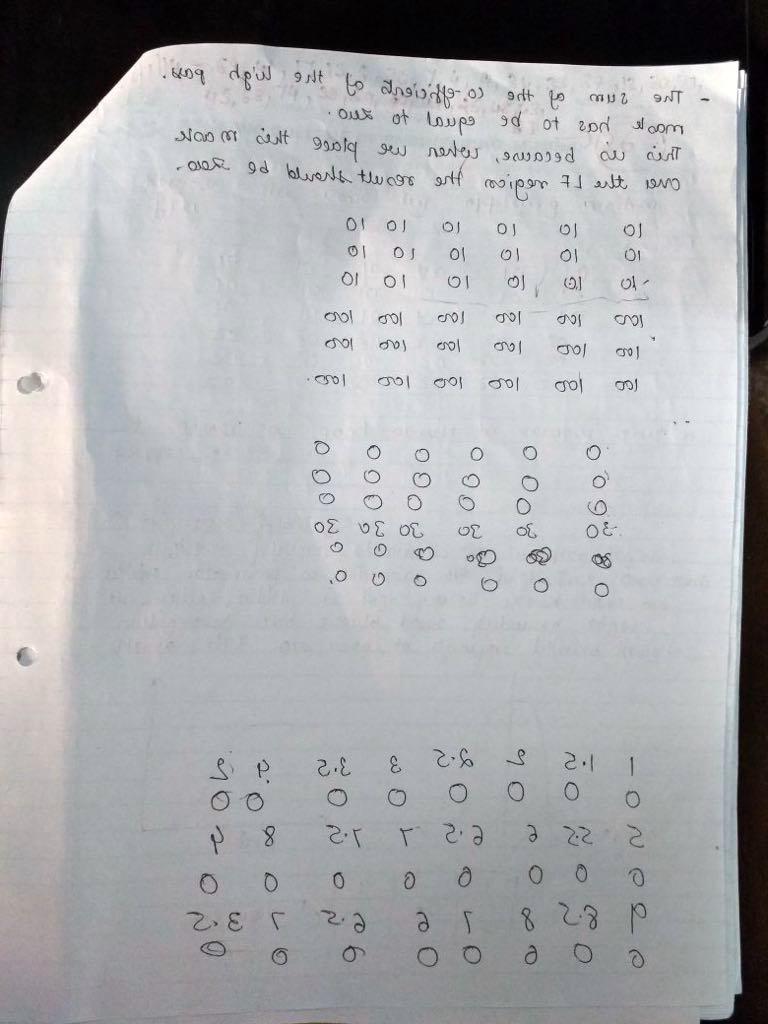 - The sum of the co-efficients of the high pass.
mask has to be equal to zero.
This is because, when we place this mask
over the LF region the result should be zero.
10 10 10 10 10 10
10 10 10 10 10 10
10 10 10 10 10 10
100 100 100 100 100 100
100 100 100 100 100 100
100 100 100 100 100 100.
0 0 0 0 0 0
0 0 0 0 0 0
0 0 0 0 0 0
30 30 30 30 30 30
0 0 0
0 0 0 0 0 0
1 1.5 2 2.5 3 3.5 4 2
0 0 0 0 0 0 0 0
5 5.5 6 6.5 7 7.5 8 4
0 0 0 0 0 0 0 0
9 8.5 8 7 6 6.5 7 3.5
0 0 0 0 0 0 0 0